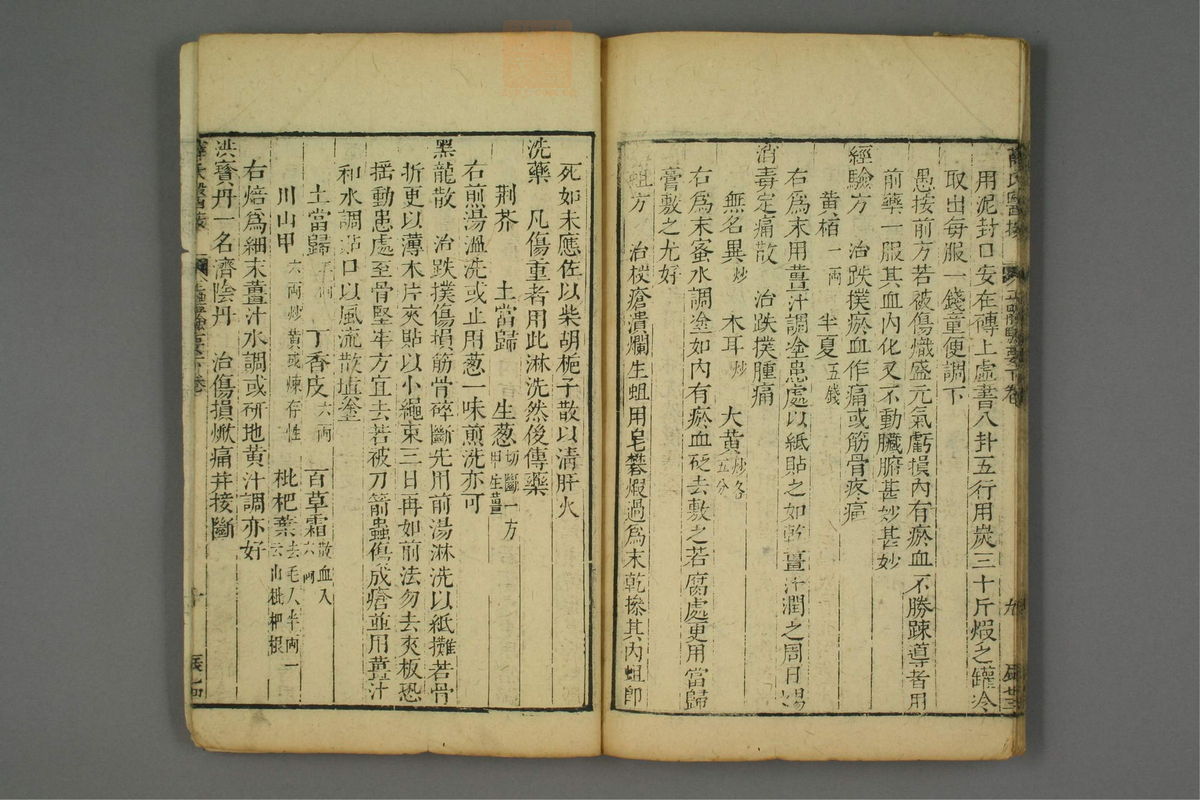 用泥封口安在磚上虛書八卦五行用炭三十斤煆之鑵冷
取出每服一錢童便調下
愚按前方若被傷熾盛元氣虧損內有瘀血不勝踈導者用
前藥一服其血內化又不動臟腑甚妙甚妙
經驗方 治跌撲瘀血作痛或筋骨疼痛
黄栢一兩 半夏五錢
右為末用薑汁調塗患處以紙貼之如乾薑汁潤之周日易
消毒定痛散 治跌撲腫痛
無名異炒 木耳炒 大黄炒各五分
右為末蜜水調塗如內有瘀血砭去敷之若腐處更用當歸
膏敷之尤好
蛆方 治杖瘡潰爛生蛆用皂礬煆過為末乾摻其內蛆即
九
死如未應佐以柴胡梔子散以清肝火
洗藥 凡傷重者用此淋洗然後傅藥
荆芥 土當歸 生葱切斷一方用生薑
右煎湯溫洗或止用葱一味煎洗亦可
黑龍散 治跌撲傷損筋骨碎斷先用前湯淋洗以紙攤若骨
折更以薄木片夾貼以小繩束三日再如前法勿去夾板恐
搖動患處至骨堅牢方宜去若被刀箭蟲傷成瘡並用薑汁
和水調貼口以風流散塡塗
土當歸 丁香皮六兩 百草霜散血入六兩
川山甲六兩炒黄或煉存性 枇杷葉去毛入半兩一云山枇杷根
右焙為細末薑汁水調或硏地黄汁調亦好
洪寳丹一名濟陰丹 治傷損焮痛并接斷
十